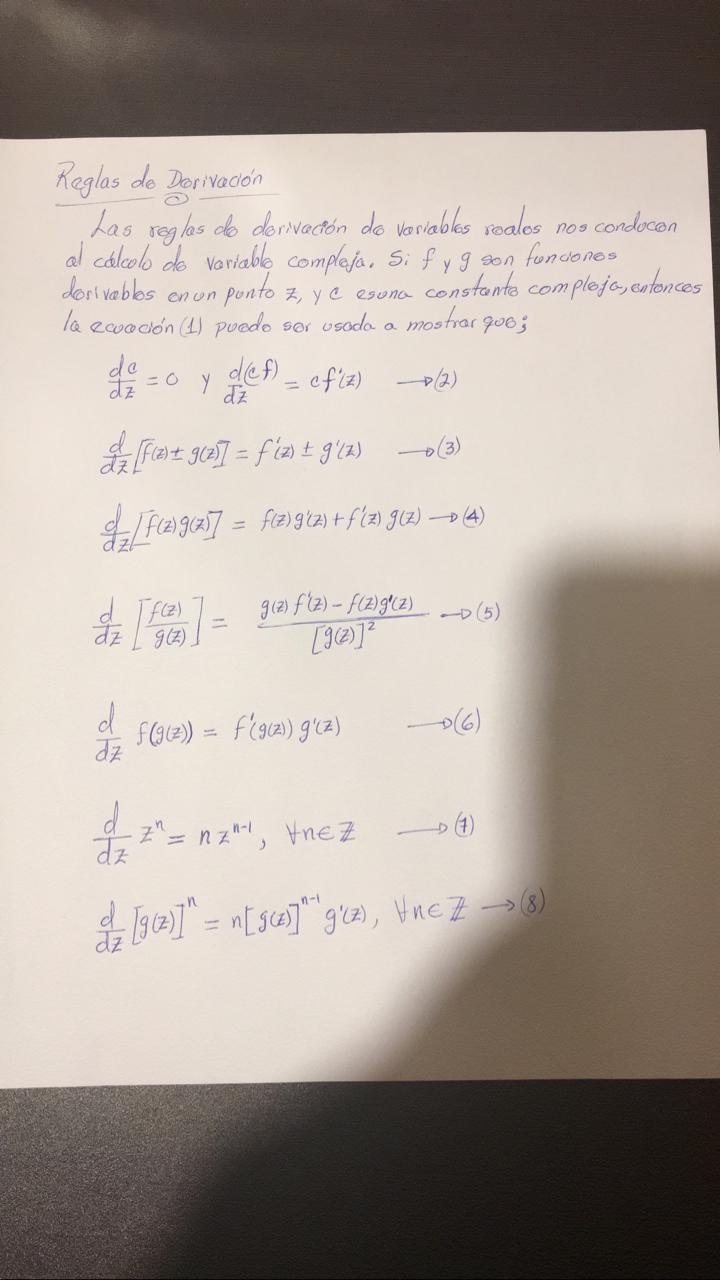 Reglas de Derivación
Las reglas de derivación de variables reales nos conducen
al cálculo de variable compleja. Si f y g son funciones
derivables en un punto z, y c es una constante compleja, entonces
la ecuación (1) puede ser usada a mostrar que;
dc/dz = 0 y d(cf)/dz = cf'(z) → (2)
d/dz [f(z) ± g(z)] = f'(z) ± g'(z) → (3)
d/dz [f(z)g(z)] = f(z)g'(z) + f'(z)g(z) → (4)
d/dz [f(z)/g(z)] = (g(z)f'(z) − f(z)g'(z))/[g(z)]² → (5)
d/dz f(g(z)) = f'(g(z)) g'(z) → (6)
d/dz zⁿ = n zⁿ⁻¹, ∀n∈ℤ → (7)
d/dz [g(z)]ⁿ = n[g(z)]ⁿ⁻¹ g'(z), ∀n∈ℤ → (8)